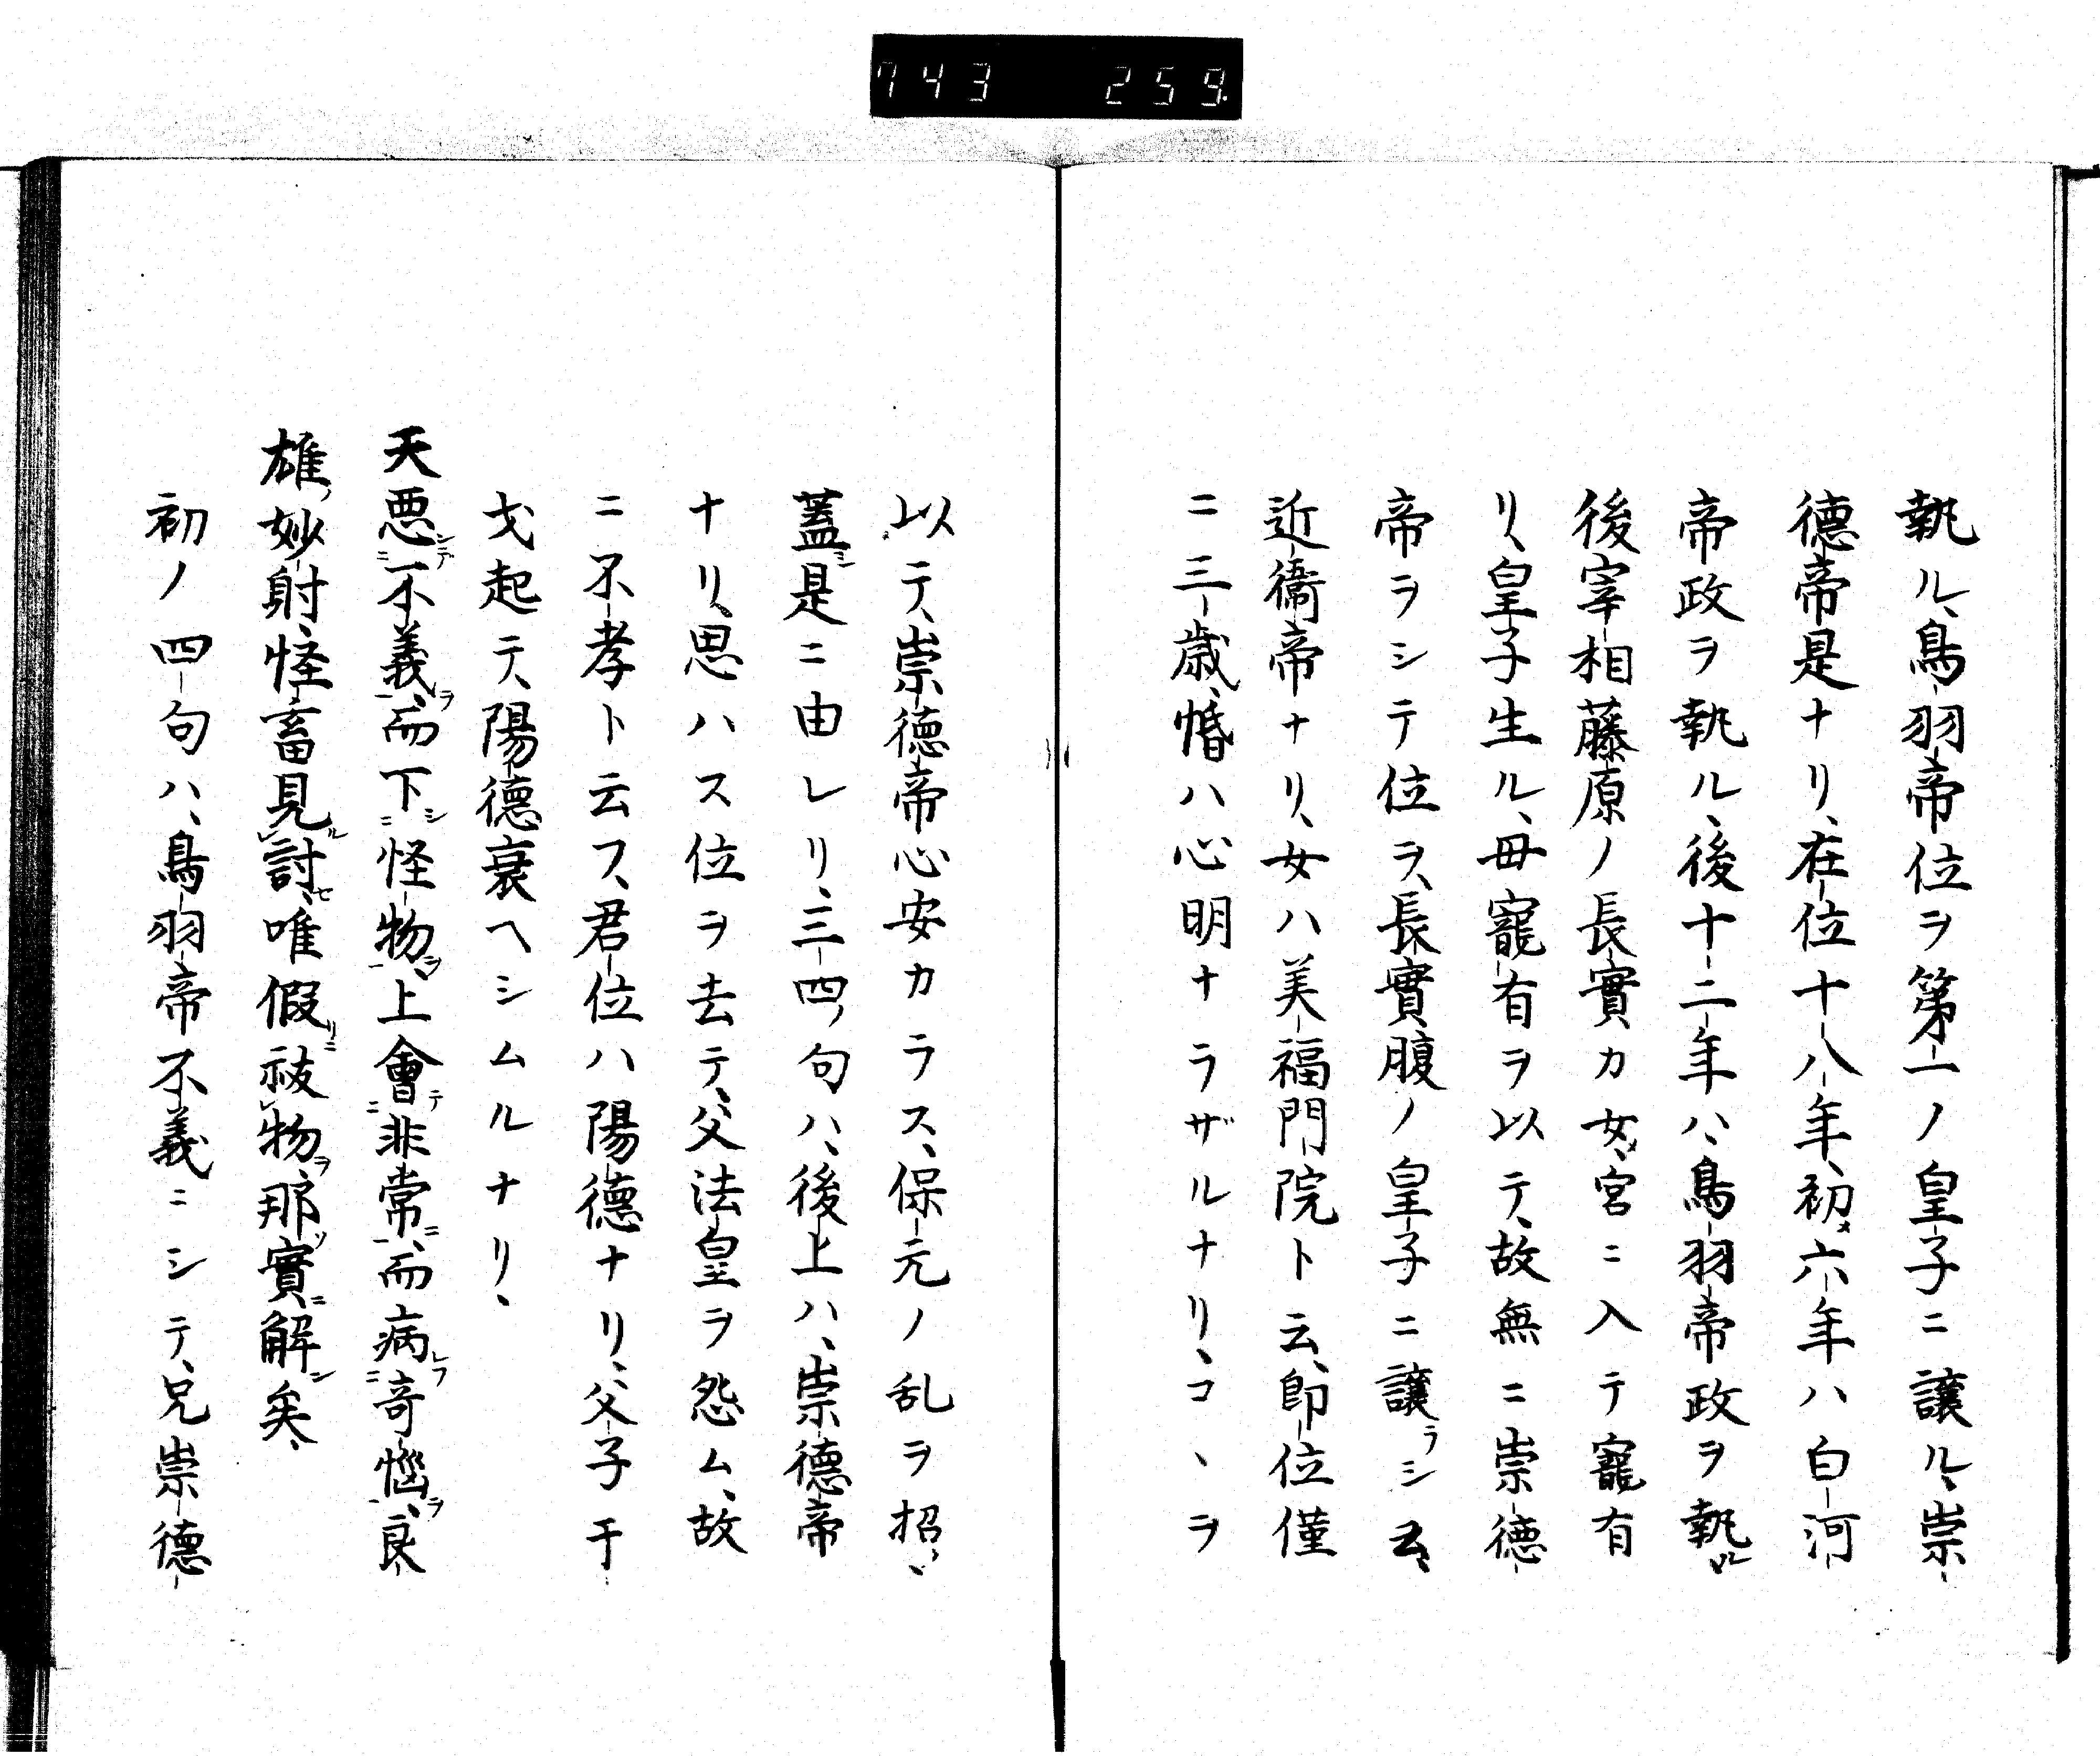 743 259
執ル、鳥羽帝位ヲ第一ノ皇子ニ譲ル、崇
德帝是ナリ、在位十八年、初メ六年ハ白河
帝政ヲ執ル、後十二年ハ、鳥羽帝政ヲ執ル、
後宰相藤原ノ長實カ女メ、宮ニ入テ寵有
リ、皇子生ル、母寵有ヲ以テ、故無ニ崇德
帝ヲシテ位ヲ、長實腹ノ皇子ニ譲ラシム、
近衞帝ナリ、女ハ美福門院ト云、卽位僅
ニ三歳、惛ハ心明ナラザルナリ、コヽヲ
以テ、崇德帝心安カラス、保元ノ乱ヲ招ク、
蓋シ是ニ由レリ、三四句ハ、後上ハ、崇德帝
ナリ、思ハス位ヲ去テ、父法皇ヲ怨ム、故
ニ不孝ト云フ、君位ハ陽德ナリ、父子干
戈起テ、陽德衰ヘシムルナリ、
天悪ニシテ不義ヲ一、而下ニシ怪物ヲ一、上會ニテ非常ニ一、而病ニレフ奇惱ヲ一、良
雄ノ妙射、怪畜見ルレ討セ、唯假リニ祓レ物ヲ、那ソ實ニ解シ矣、
初ノ四句ハ、鳥羽帝不義ニシテ、兄崇德